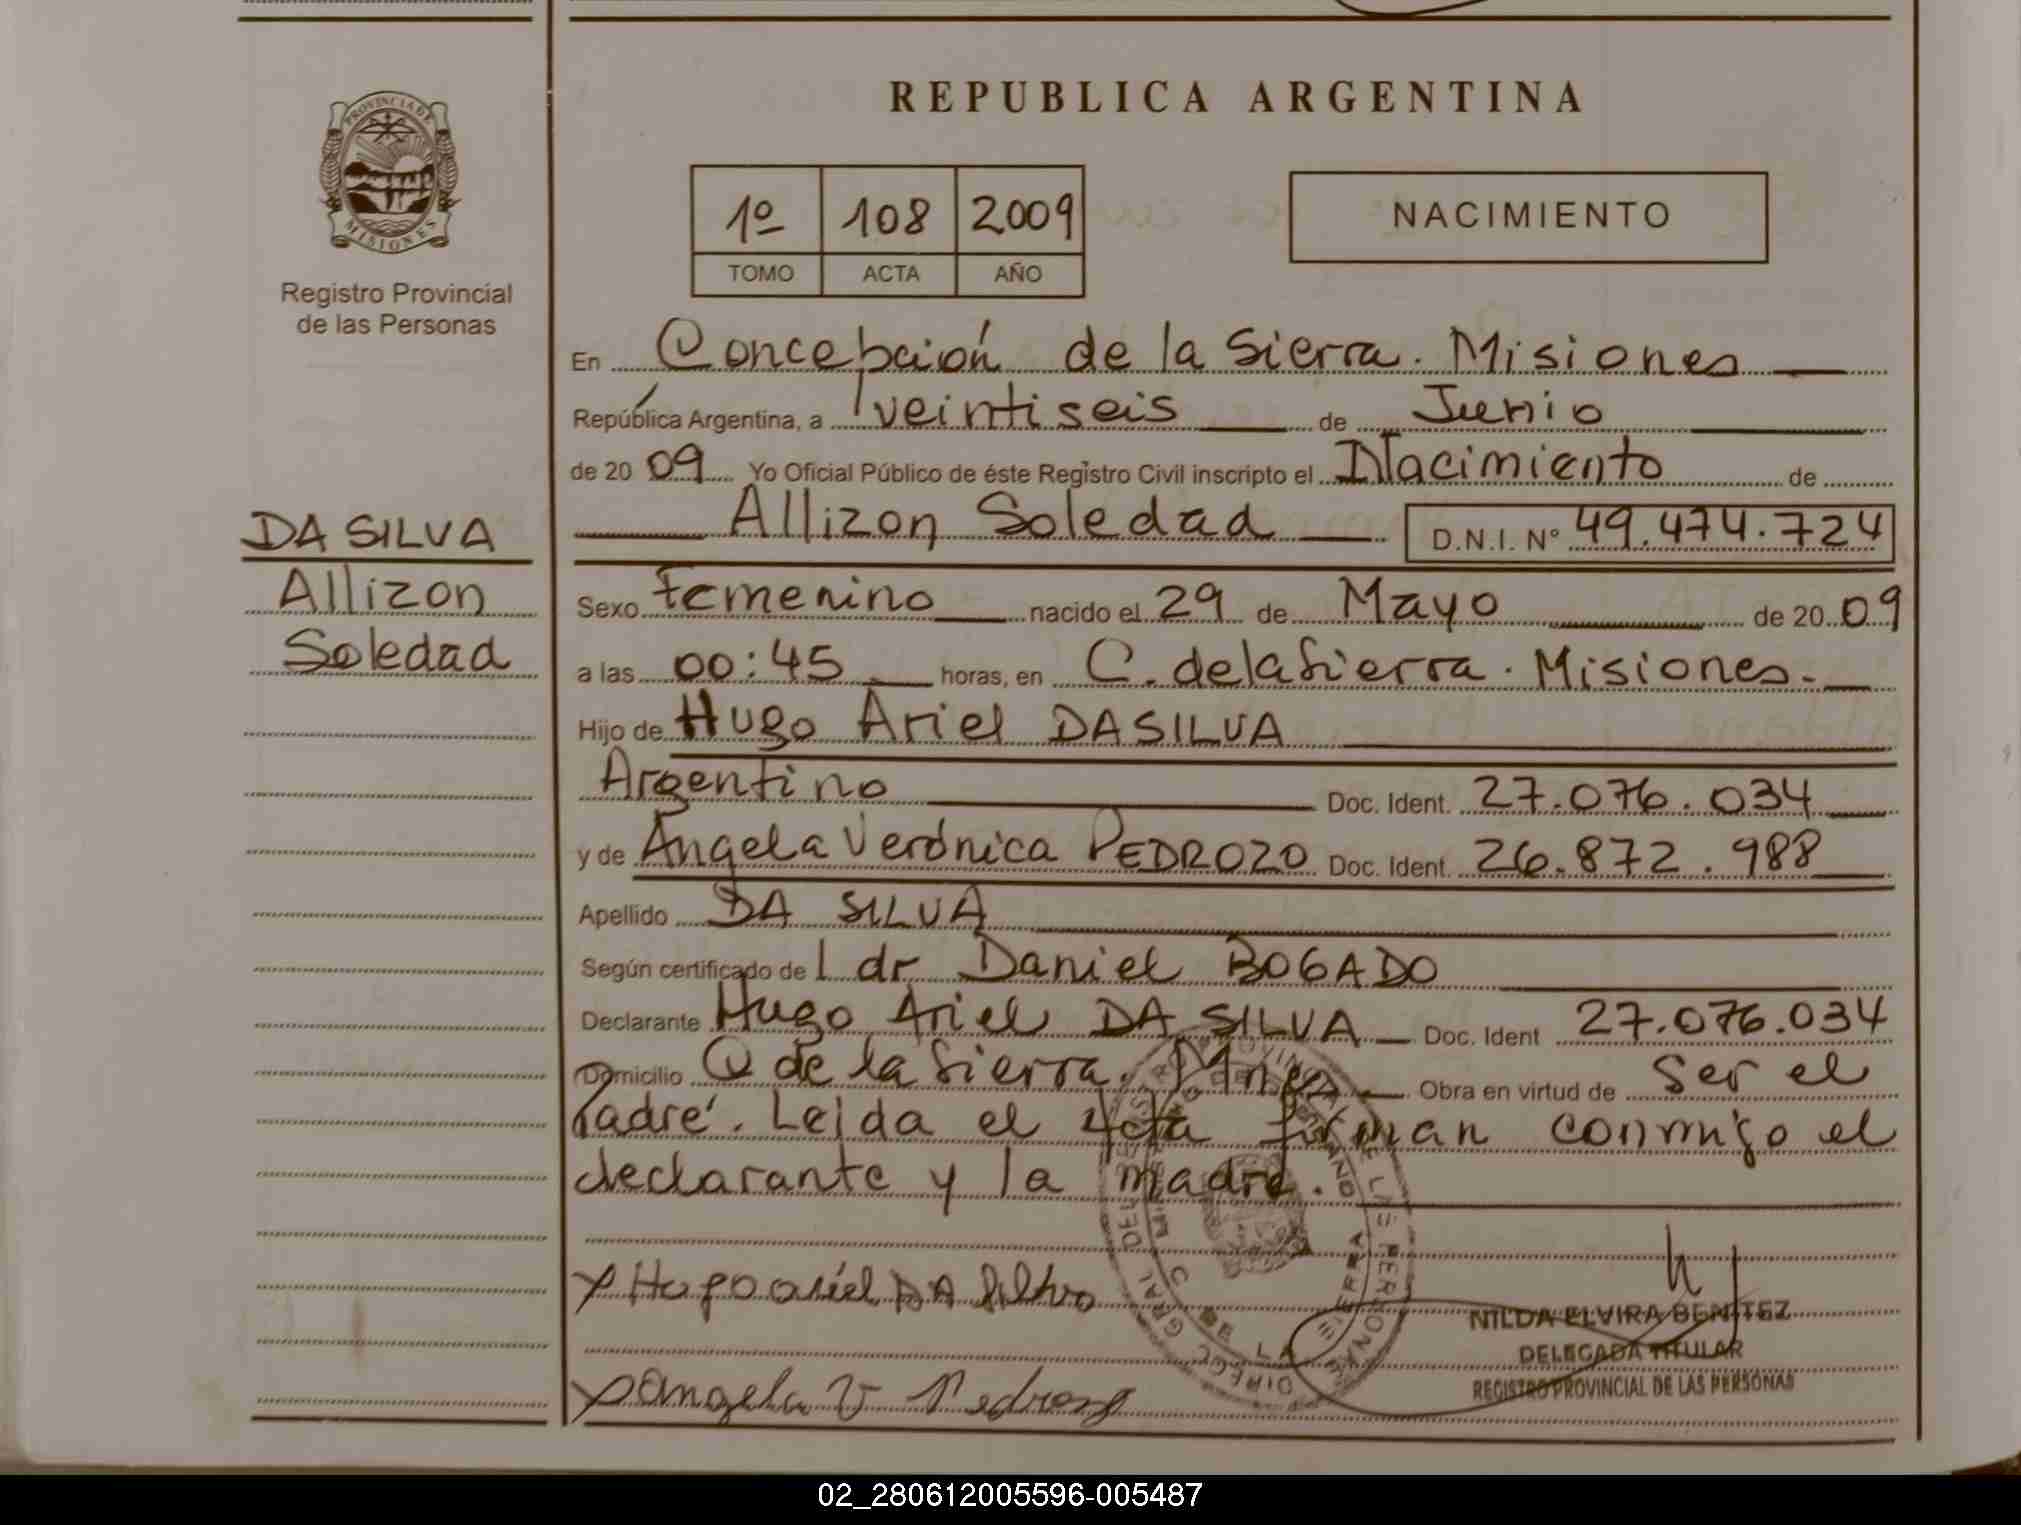 REPUBLICA ARGENTINA
PROVINCIA DE
MISIONES
Registro Provincial
de las Personas
1º 108 2009
TOMO ACTA AÑO
NACIMIENTO
En Concepción de la Sierra. Misiones
República Argentina, a veintiseis de Junio
de 20 09 Yo Oficial Público de éste Registro Civil inscripto el Nacimiento de
Allizon Soledad D.N.I. Nº 49.474.724
DA SILVA
Allizon
Soledad
Sexo Femenino nacido el 29 de Mayo de 20 09
a las 00:45 horas, en C. de la Sierra. Misiones.
Hijo de Hugo Ariel DA SILVA
Argentino Doc. Ident. 27.076.034
y de Angela Verónica PEDROZO Doc. Ident. 26.872.988
Apellido DA SILVA
Según certificado de l dr Daniel BOGADO
Declarante Hugo Ariel DA SILVA Doc. Ident 27.076.034
Domicilio C de la Sierra. Mnes Obra en virtud de Ser el
Padre. Leída el Acta firman conmigo el
declarante y la madre.
x Hugo ariel DA Silva
x Angela V Pedrozo
NILDA ELVIRA BENITEZ
DELEGADA TITULAR
REGISTRO PROVINCIAL DE LAS PERSONAS
02_280612005596-005487